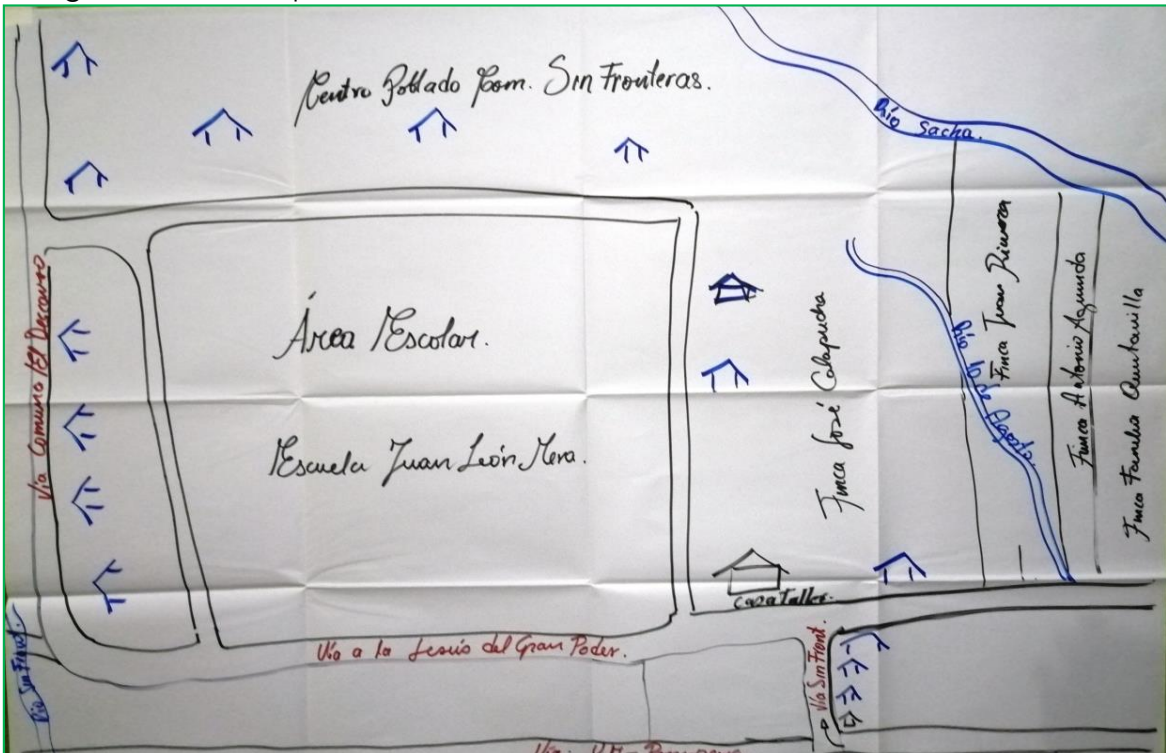 Centro Poblado Com. Sin Fronteras.
Río Sacha.
Vía Comuna El Descanso
Área Escolar.
Escuela Juan León Mera.
Finca José Calapucha
Río 10 de Agosto.
Finca Juan
Finca Antonio Aguinda
Finca Familia Quintanilla
Casa Taller.
Río Sin Front.
Vía a la Jesús del Gran Poder.
Vía Sin Front.
Vía